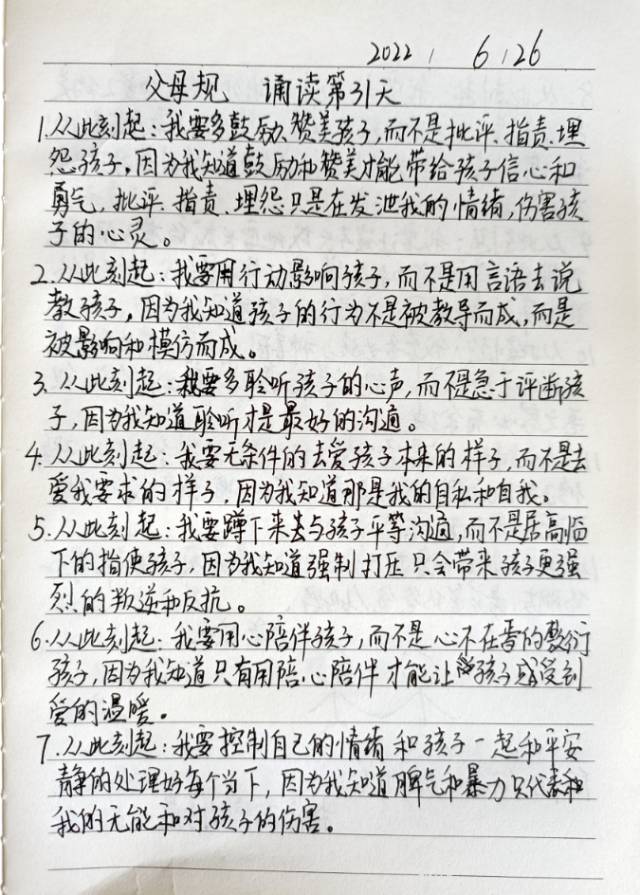 2022, 6,26
父母规 诵读第31天
1.从此刻起:我要多鼓励、赞美孩子,而不是批评、指责、埋
怨孩子,因为我知道鼓励和赞美才能带给孩子信心和
勇气,批评、指责、埋怨只是在发泄我的情绪,伤害孩
子的心灵。
2.从此刻起:我要用行动影响孩子,而不是用言语去说
教孩子,因为我知道孩子的行为不是被教导而成,而是
被影响和模仿而成。
3.从此刻起:我要多聆听孩子的心声,而不是急于评断孩
子,因为我知道聆听才是最好的沟通。
4.从此刻起:我要无条件的去爱孩子本来的样子,而不是去
爱我要求的样子,因为我知道那是我的自私和自我。
5.从此刻起:我要蹲下来去与孩子平等沟通,而不是居高临
下的指使孩子,因为我知道强制打压只会带来孩子更强
烈的叛逆和反抗。
6.从此刻起:我要用心陪伴孩子,而不是心不在焉的敷衍
孩子,因为我知道只有用陪心陪伴才能让孩子感受到
爱的温暖。
7.从此刻起:我要控制自己的情绪和孩子一起和平安
静的处理好每个当下,因为我知道脾气和暴力只代表和
我的无能和对孩子的伤害。